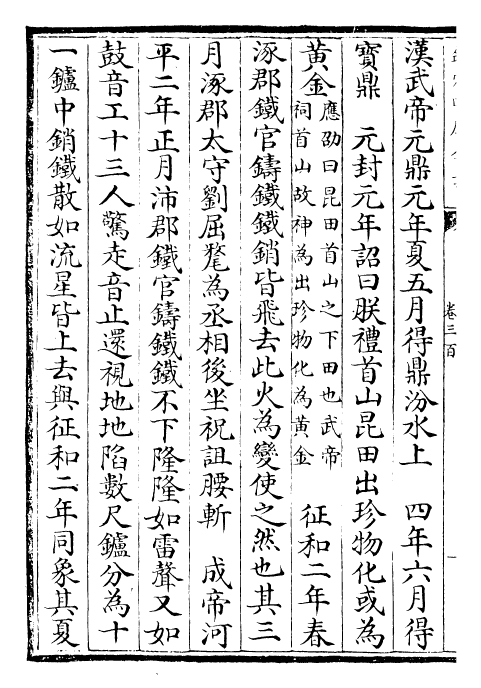 漢武帝元鼎元年夏五月得鼎汾水上　四年六月得
寳鼎　元封元年詔曰朕禮首山昆田出珍物化或為
黄金應劭曰昆田首山之下田也武帝
祠首山故神為出珍物化為黄金
征和二年春
涿郡鐵官鑄鐵鐵銷皆飛去此火為變使之然也其三
月涿郡太守劉屈氂為丞相後坐祝詛腰斬　成帝河
平二年正月沛郡鐵官鑄鐵鐵不下隆隆如雷聲又如
鼓音工十三人驚走音止還視地地陷數尺鑪分為十
一鑪中銷鐵散如流星皆上去與征和二年同象其夏
卷三百